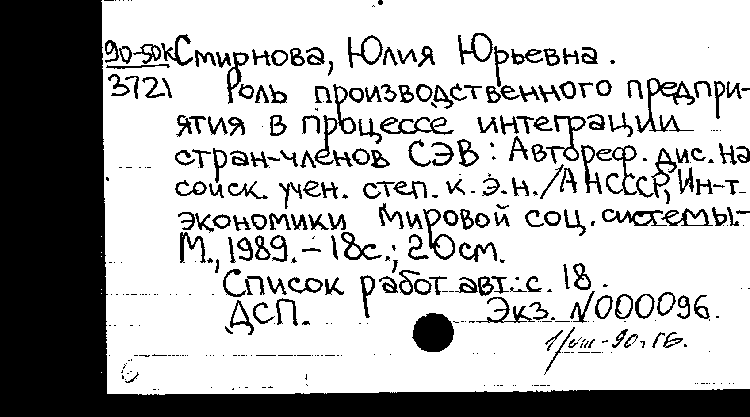 90-50К Смирнова, Юлия Юрьевна.
3721 Роль производственного предпри-
ятия в процессе интеграции
стран-членов СЭВ: Автореф. дис. на
соиск. учен. степ. к. э. н. / АНСССР, Ин-т
экономики мировой соц. системы.-
М., 1989. - 18с.; 20см.
Список работ авт.: с. 18.
ДСП. Экз. N000096.